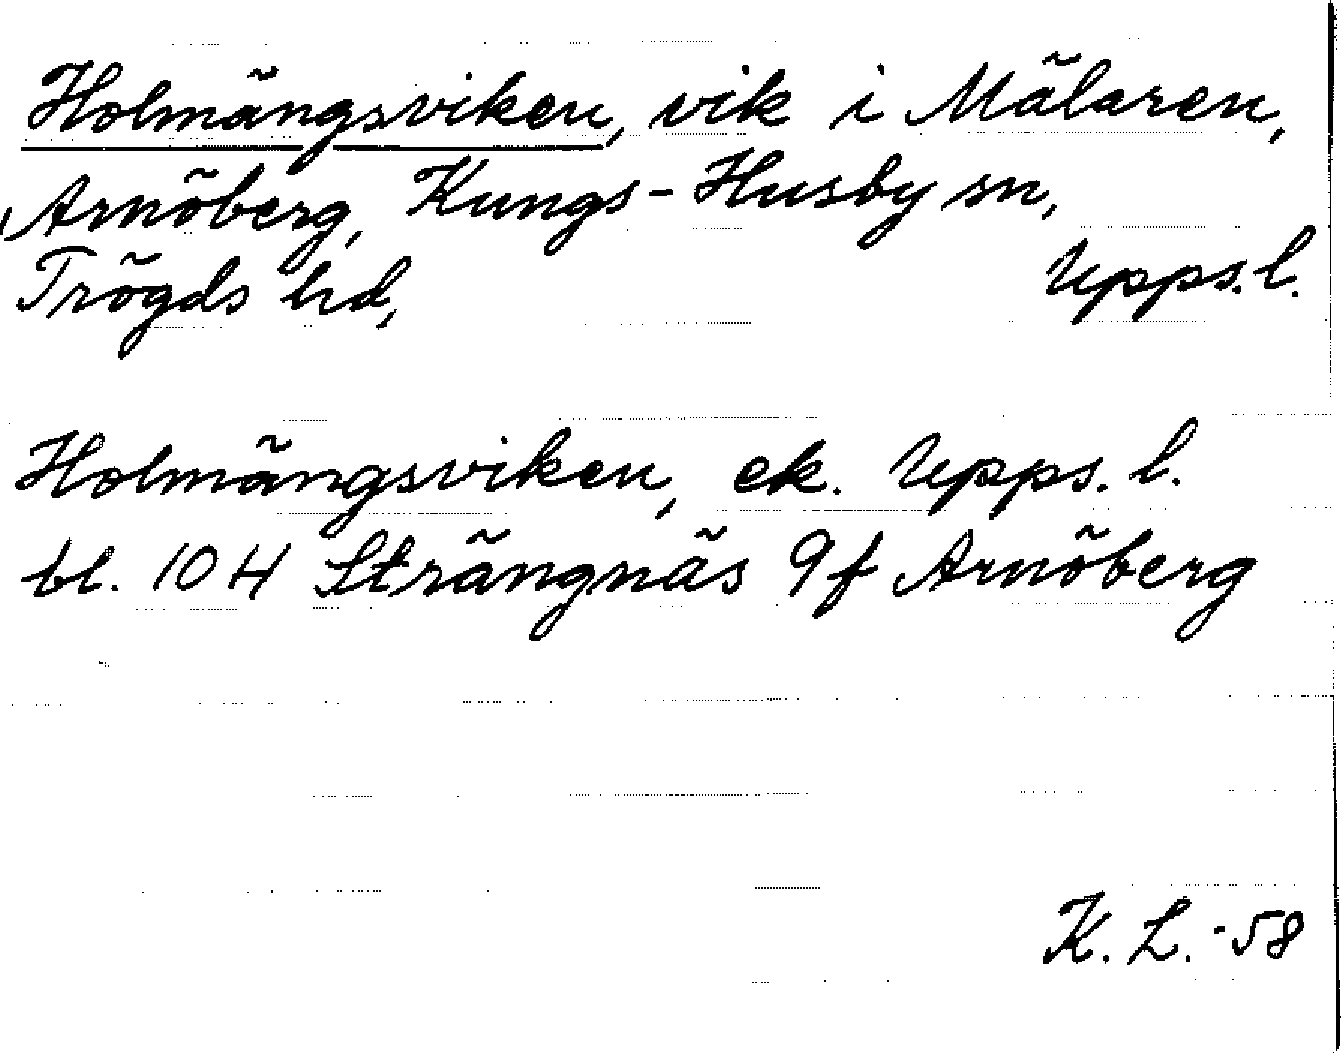 Holmängsviken, vik i Mälaren,
Arnöberg, Kungs-Husby sn,
Trögds hd, Upps.l.
Holmängsviken, ek. Upps. l.
bl. 104 Strängnäs 9f Arnöberg
K. L. -58